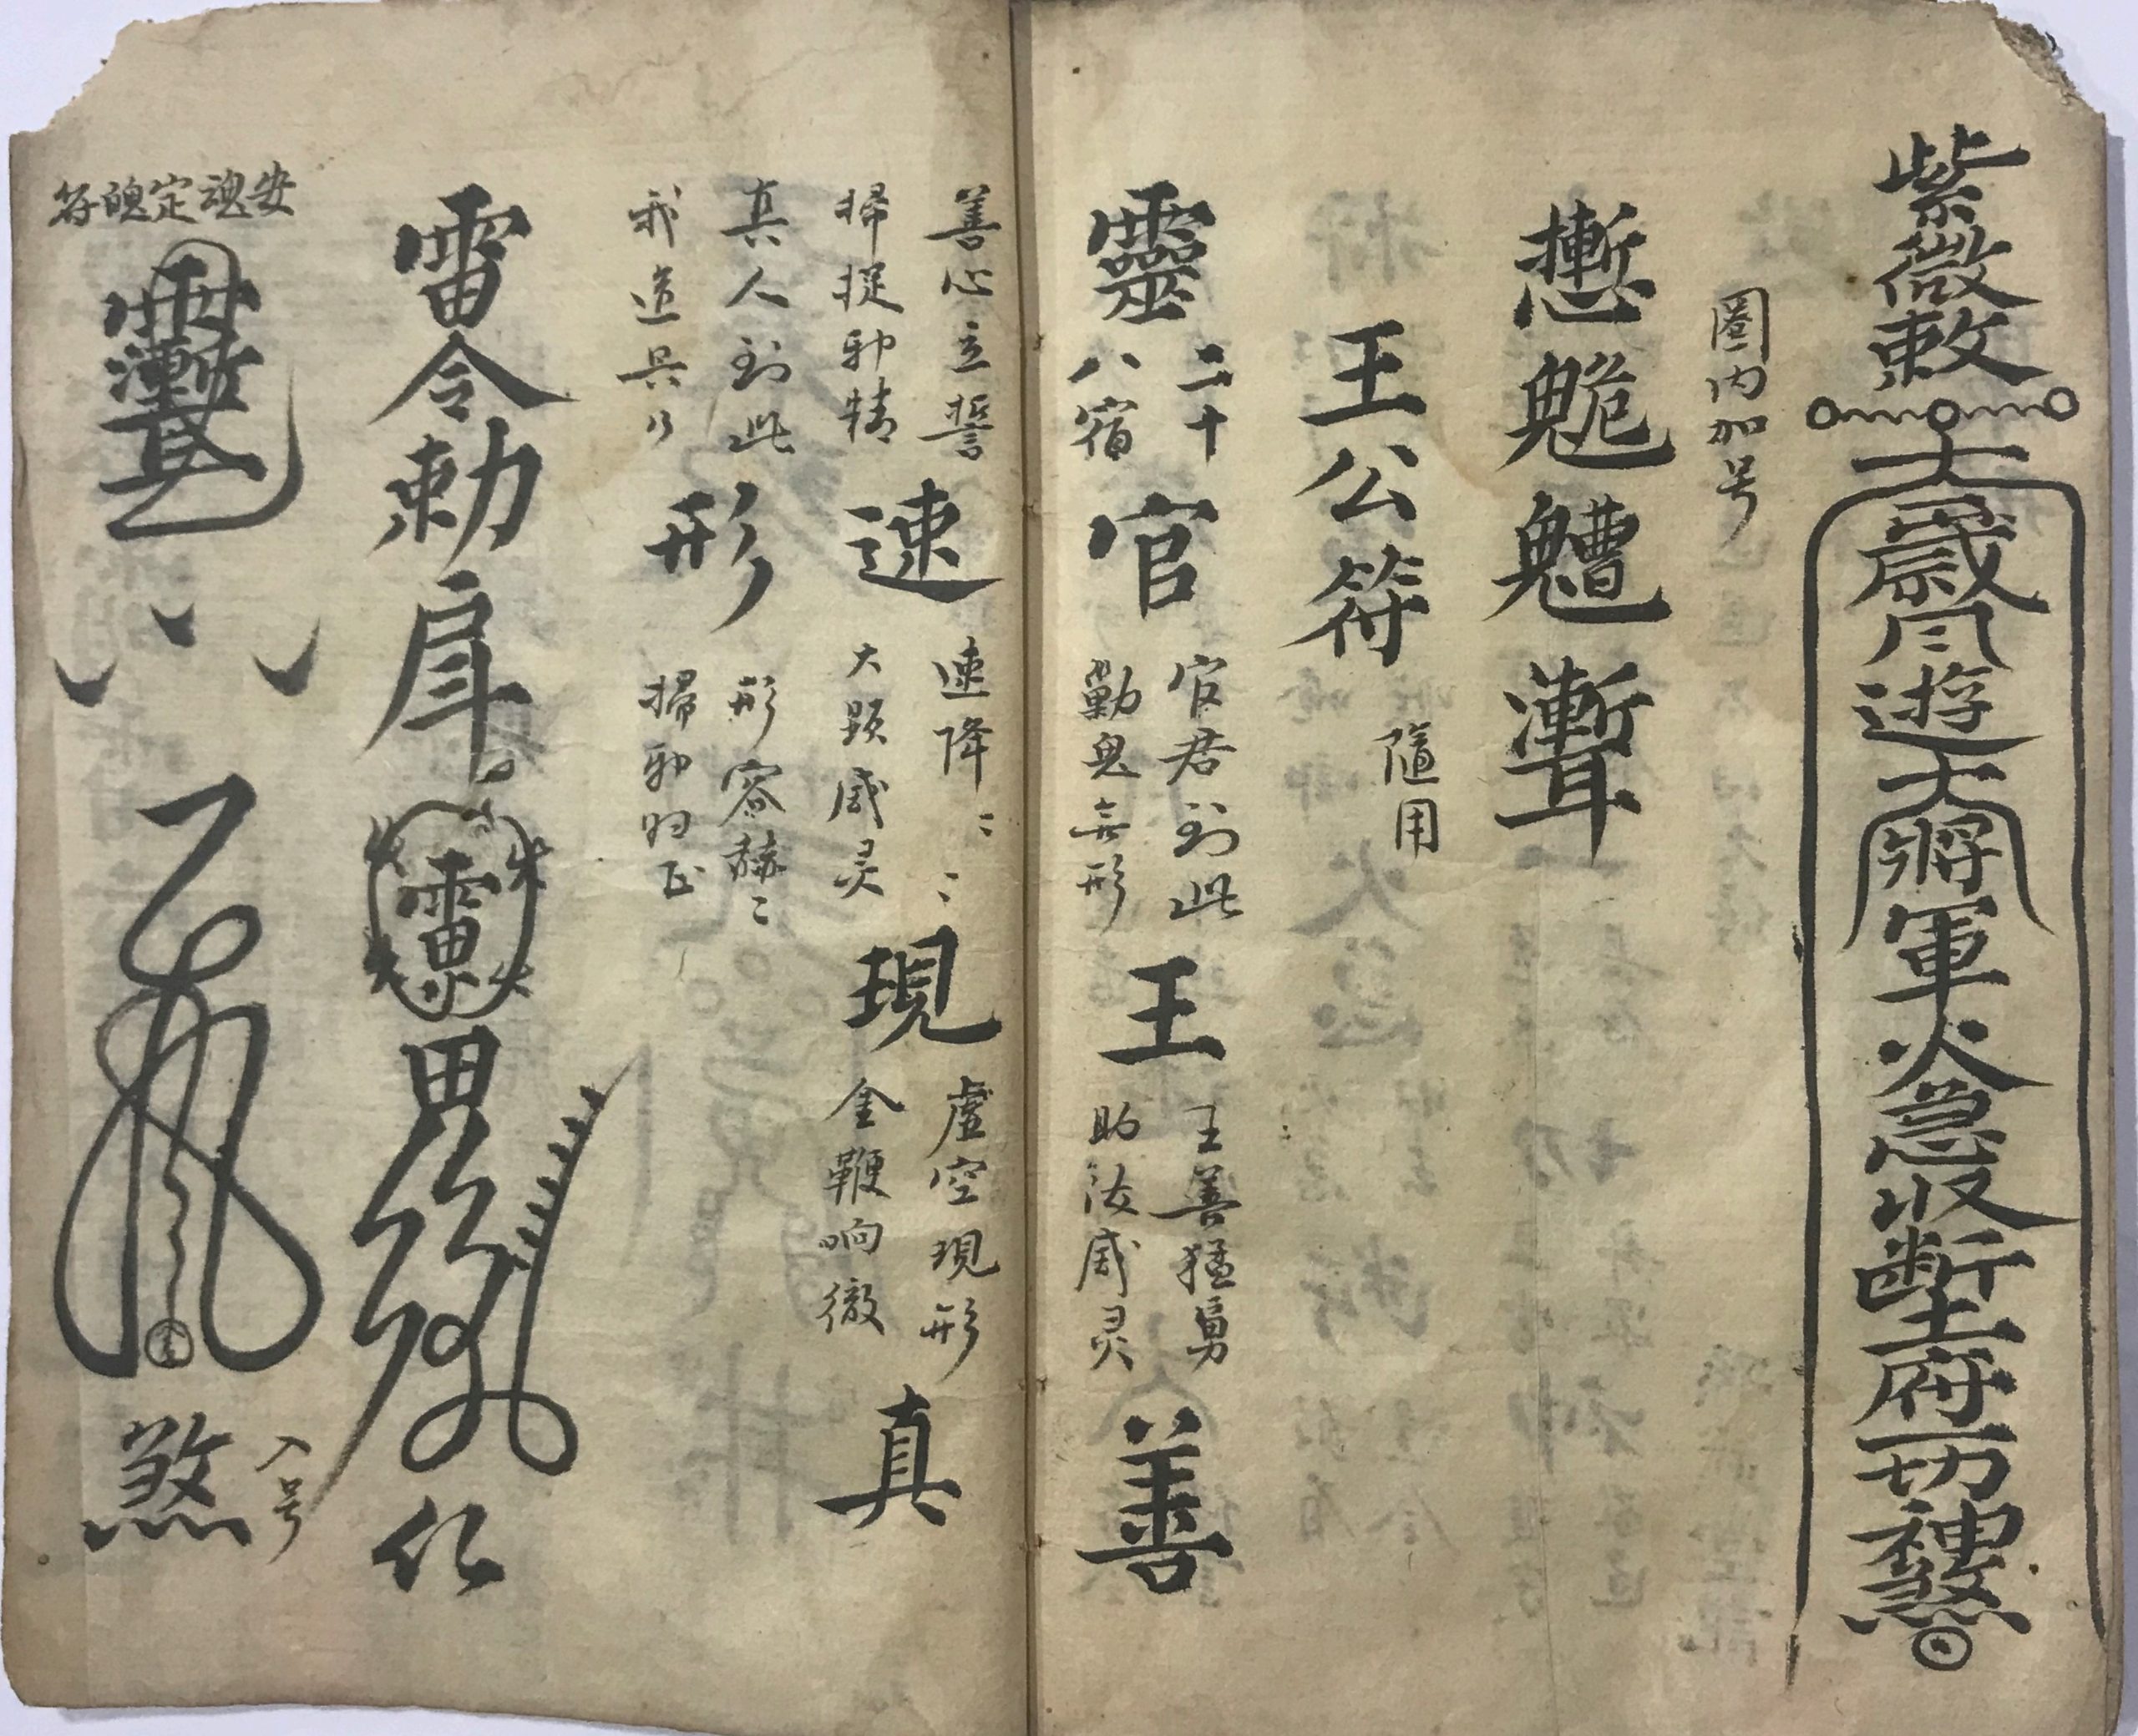 紫微敕
大歲月遊大將軍火急收斷土府一切神煞
圈内加号
王公符
隨用
靈
二十
八宿
官
官君到此
勦鬼無形
王
王善猛勇
助法威灵
善
善心立誓
掃捉邪精
速
速降〻〻
大顕威灵
現
虚空現形
金鞭响徹
真
真人到此
我道兴乃
形
形容赫〻
掃邪归正
雷令勅
仁
安魂定魄符
煞
入号